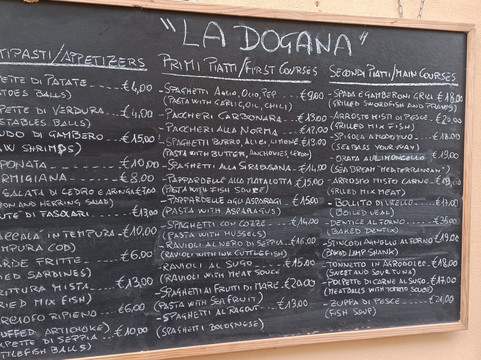 "LA DOGANA"
TIPASTI/APPETIZERS
PETTE DI PATATE €4,00
TOES BALLS)
PETTE DI VERDURA €4,00
ETABLES BALLS)
UDO DI GAMBERO €15,00
W SHRIMPS)
PONATA €10,00
RMIGIANA €8,00
SALATA DI CEDRO E ARINGA
ON AND HERRING SALAD)
UTE DI FASOLARI €13,00
CCALÀ IN TEMPURA €10,00
MPURA COD)
ARDE FRITTE €6,00
IED SARDINES)
RITTURA MISTA €13,00
RIED MIX FISH)
ARCIOFO RIPIENO €6,00
UFFED ARTICHOKE)
PETTE DI SEPPIA €10,00
TTLEFISH BALLS)
PRIMI PIATTI/FIRST COURSES
-SPAGHETTI AGLIO, OLIO, PEP. €9,00
(PASTA WITH GARLIC, OIL, CHILI)
-PACCHERI CARBONARA €13,00
-PACCHERI ALLA NORMA €12,00
-SPAGHETTI BURRO, ALICI, LIMONE €13,00
(PASTA WITH BUTTER, ANCHOVIES, LEMON)
-SPAGHETTI ALLA SIRACUSANA €14,00
-PAPPARDELLE ALLA MATALOTTA €15,00
(PASTA WITH FISH SOUPE)
-PAPPARDELLE AGLI ASPARAGI €15,00
(PASTA WITH ASPARAGUS)
-SPAGHETTI CON COZZE €14,00
(PASTA WITH MUSSELS)
-RAVIOLI AL NERO DI SEPPIA €16,00
(RAVIOLI WITH INK CUTTLEFISH)
-RAVIOLI AL SUGO €15,00
(RAVIOLI WITH MEAT SOUCE
-SPAGHETTI AI FRUTTI DI MARE €20,00
(PASTA WITH SEA FRUIT)
-SPAGHETTI AL RAGOUT €13,00
(SPAGHETTI BOLOGNESE)
SECONDI PIATTI/MAIN COURSES
-SPADA E GAMBERONI GRILL €18,00
(GRILLED SWORDFISH AND PRAWNS)
-ARROSTO MISTO DI PESCE €20,00
(GRILLED MIX FISH)
-SPIGOLA A MODO MIO €18,00
(SEABASS YOUR WAY)
-ORATA AL LIMONCELLO €19,00
(SEA BREAM "MEDITERRANEAN")
-ARROSTO MISTO CARNE
(GRILLED MIX MEAT)
-BOLLITO DI VITELLO €17,00
(BOILED VEAL)
-DENTICE AL FORNO €35,00
(BAKED DENTIX)
-STINCO DI AGNELLO AL FORNO €19,00
(BAKED LAMP SHANK)
-TONNETTO IN AGRODOLCE €18,00
(SWEET AND SOUR TUNA)
-POLPETTE DI CARNE AL SUGO €17,00
(MEATBALLS WITH TOMATO SOUCE)
-ZUPPA DI PESCE €21,00
(FISH SOUP)